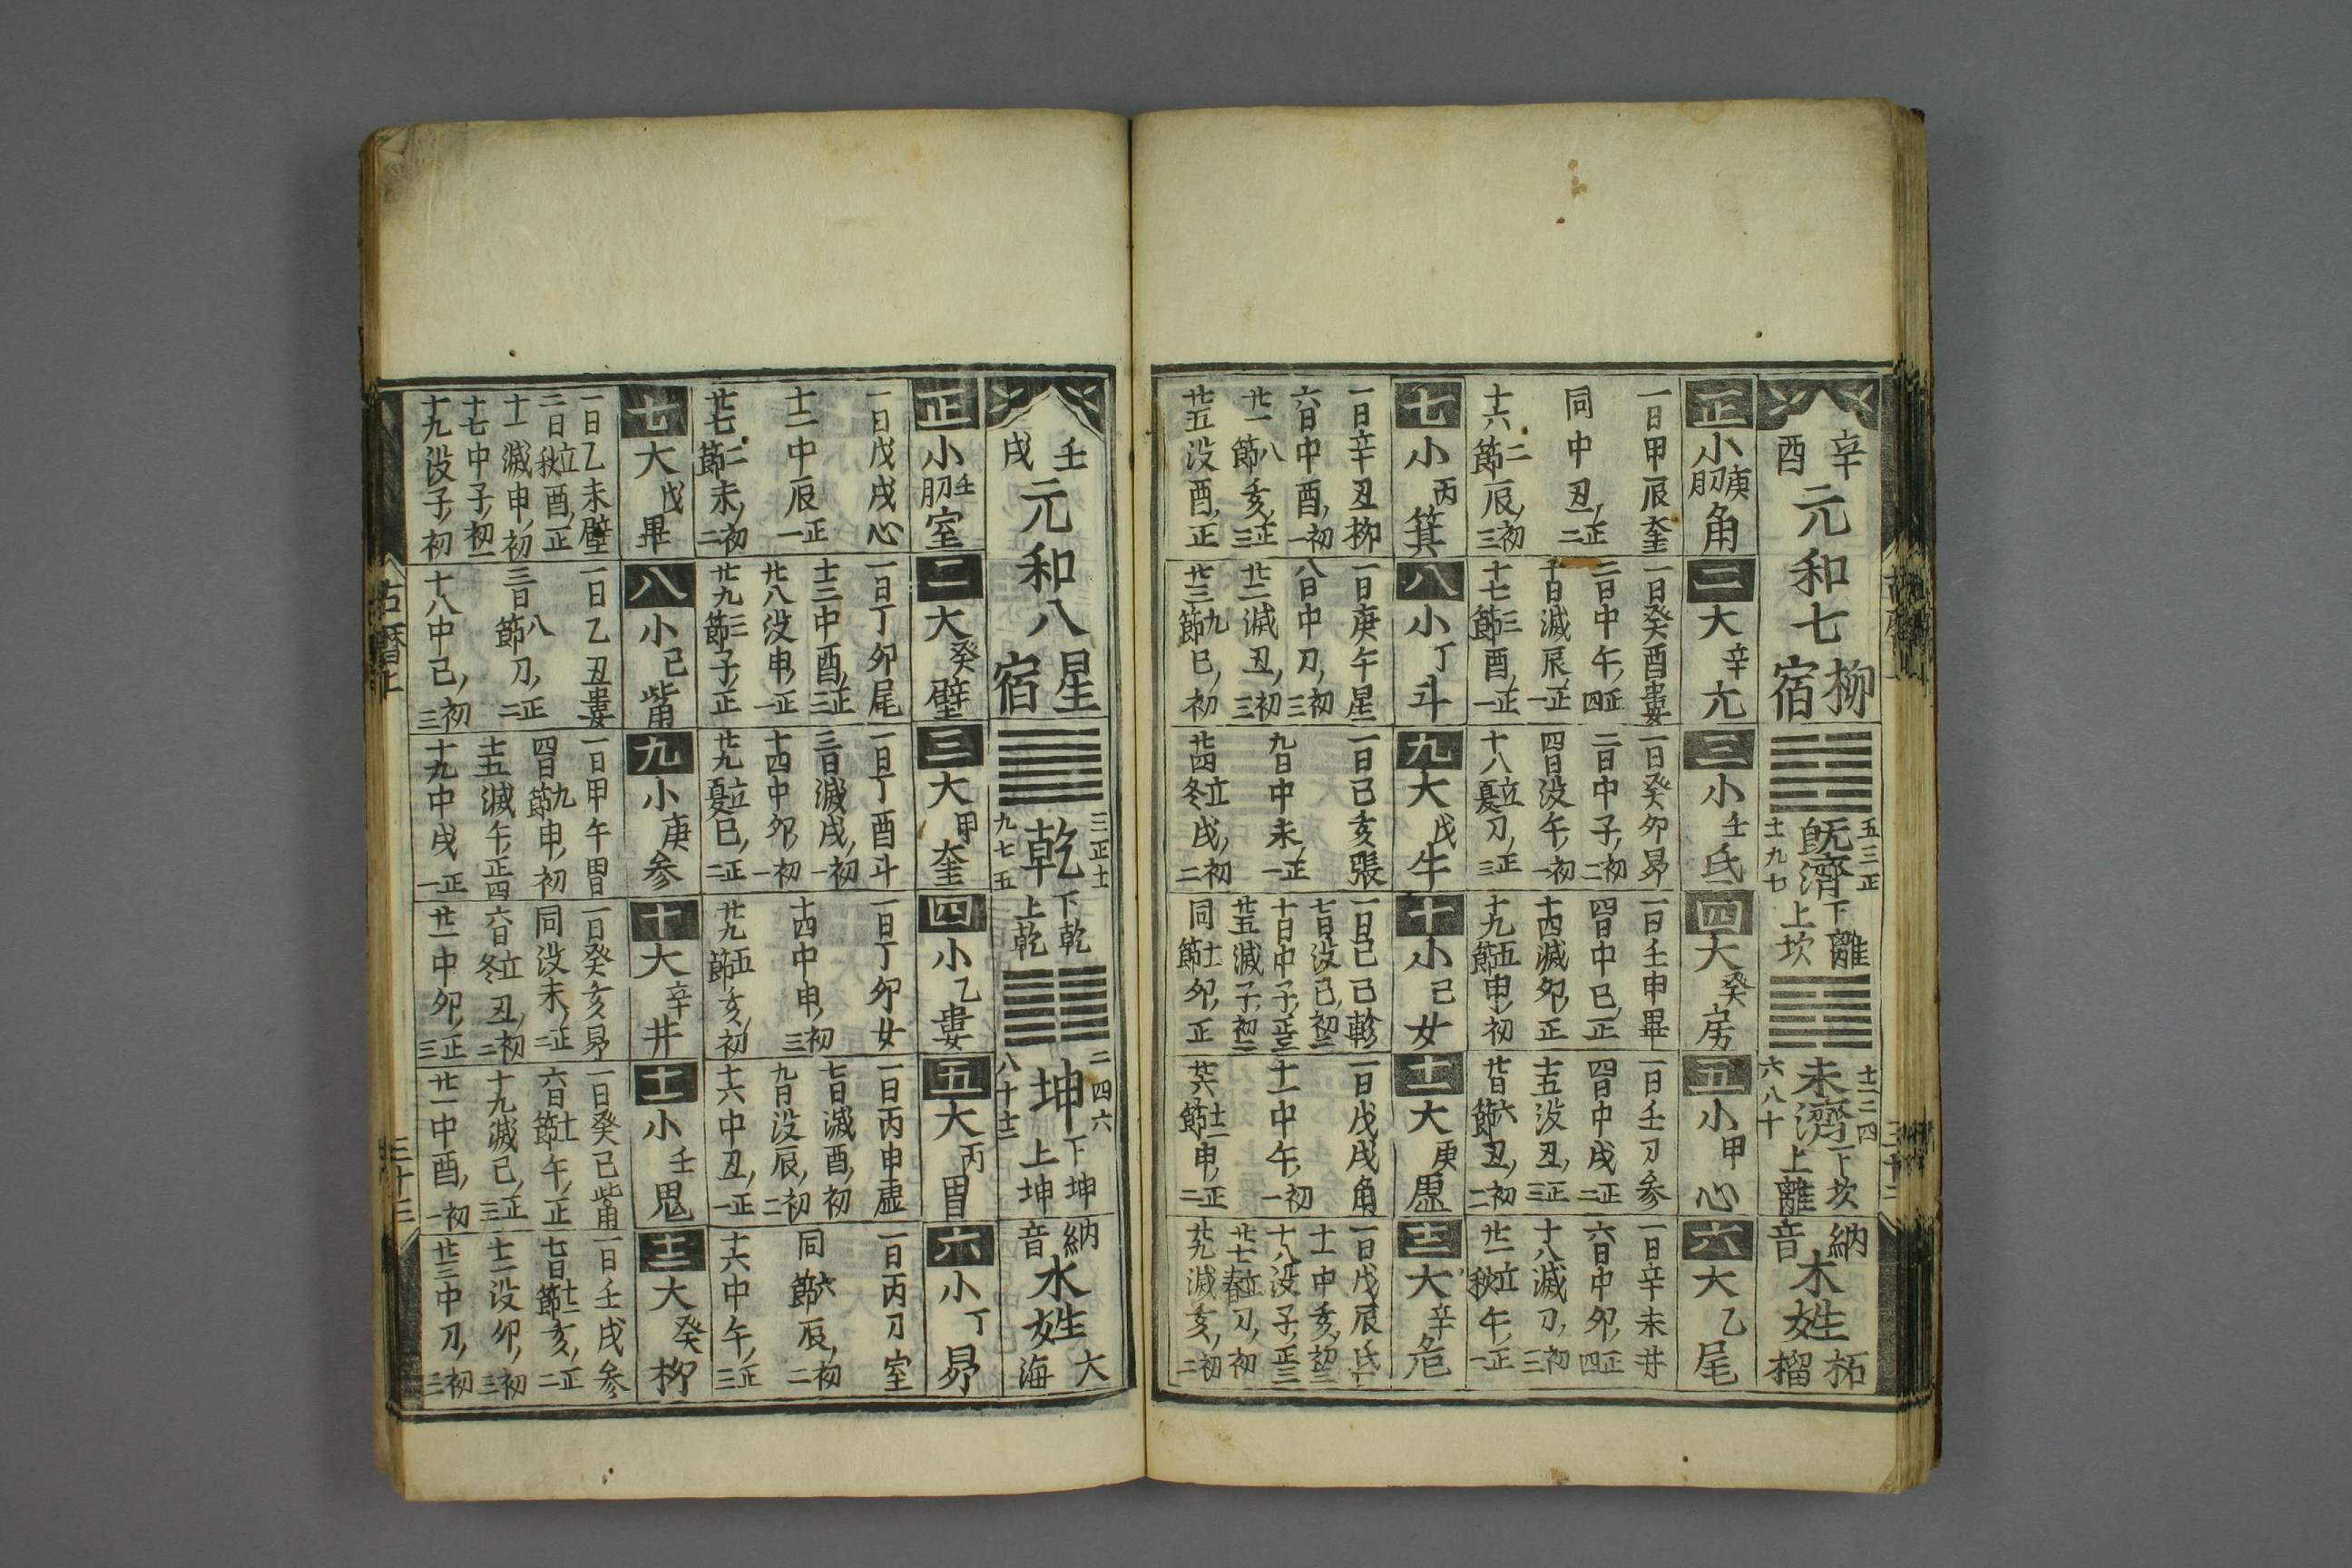 辛酉
元和七
柳宿
既濟
五三正
十一九七
下離
上坎
未濟
十二二四
六八十
下坎
上離
納音
木姓
柘榴
正
小
庚
角
一日甲辰奎
同中丑正二
十六二節辰初三
二
大
辛
亢
一日癸酉婁
二日中午正四
十日滅辰正一
十七三節酉正一
三
小
壬
氐
一日癸卯昴
二日中子初二
四日没午初一
十八立夏刀正三
四
大
癸
房
一日壬申畢
四日中巳正
十四滅卯正
十九五節申初
五
小
甲
心
一日壬刀参
四日中戌正二
十五没丑正三
廿日六節丑初二
六
大
乙
尾
一日辛未井
六日中卯正四
十八滅刀初三
廿一立秋午正一
七
小
丙
箕
一日辛丑柳
六日中酉初一
廿一八節亥正三
廿五没酉正
八
小
丁
斗
一日庚午星
八日中刀初三
廿二滅丑初三
廿三九節巳初
九
大
戊
牛
一日己亥張
九日中未正一
廿四立冬戌初二
十
小
己
女
一日己巳軫
七日没巳初二
十日中子正三
廿五滅子初二
同十一節卯正
十一
大
庚
虚
一日戊戌角
十一中午初一
廿六十二節申正二
十二
大
辛
危
一日戊辰氐
十一中亥初三
十八没子正三
廿七立春刀初
廿九滅亥初二
壬戌
元和八
星宿
乾
三正十一
九七五
下乾
上乾
坤
二四六
八十十二
下坤
上坤
納音
水姓
大海
正
小
壬
室
一日戊戌心
十一中辰正一
廿七二節未初二
二
大
癸
壁
一日丁卯尾
十二中酉正三
廿八没申正一
廿九三節子正
三
大
甲
奎
一日丁酉斗
三日滅戌初一
十四中卯初一
廿九立夏巳正二
四
小
乙
婁
一日丁卯女
十四中申初三
廿九五節亥初
五
大
丙
胃
一日丙申虚
七日滅酉初
九日没辰初二
十六中丑正一
六
小
丁
昴
一日丙刀室
同六節辰初二
十六中午正三
七
大
戊
畢
一日乙未壁
二日立秋酉正
十一滅申初
十七中子初一
十九没子初
八
小
己
觜
一日乙丑婁
三日八節刀正二
十八中巳初三
九
小
庚
参
一日甲午胃
四日九節申初
十五滅午正四
十九中戌正一
十
大
辛
井
一日癸亥昴
同没未正二
六日立冬丑初二
廿一中卯正三
十一
小
壬
鬼
一日癸巳觜
六日十一節午正
十九滅巳正三
廿一中酉初一
十二
大
癸
柳
一日壬戌参
七日十二節亥正二
十二没卯初三
廿三中刀初三
古暦上
三十三